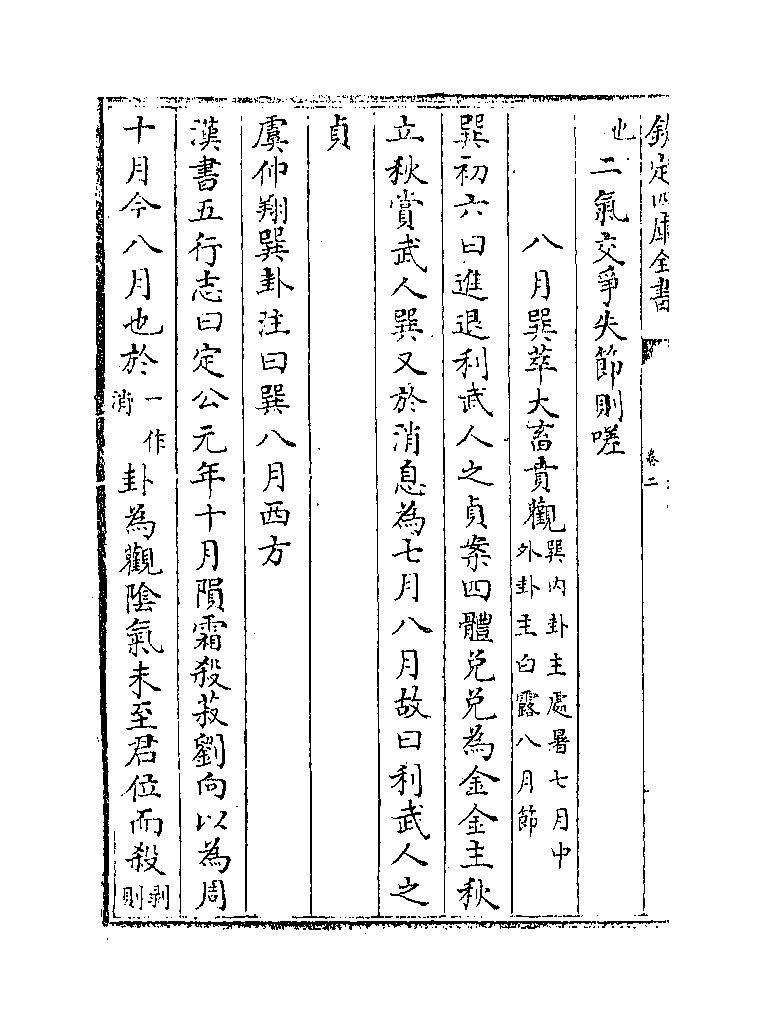 欽定四庫全書
卷二
也
二氣交爭失節則嗟
八月巽萃大畜賁觀巽内卦主處暑七月中
外卦主白露八月節
巽初六曰進退利武人之貞案四體兌兌為金金主秋
立秋賞武人巽又於消息為七月八月故曰利武人之
貞
虞仲翔巽卦注曰巽八月西方
漢書五行志曰定公元年十月隕霜殺菽劉向以為周
十月今八月也於一作
消卦為觀陰氣未至君位而殺剥
則